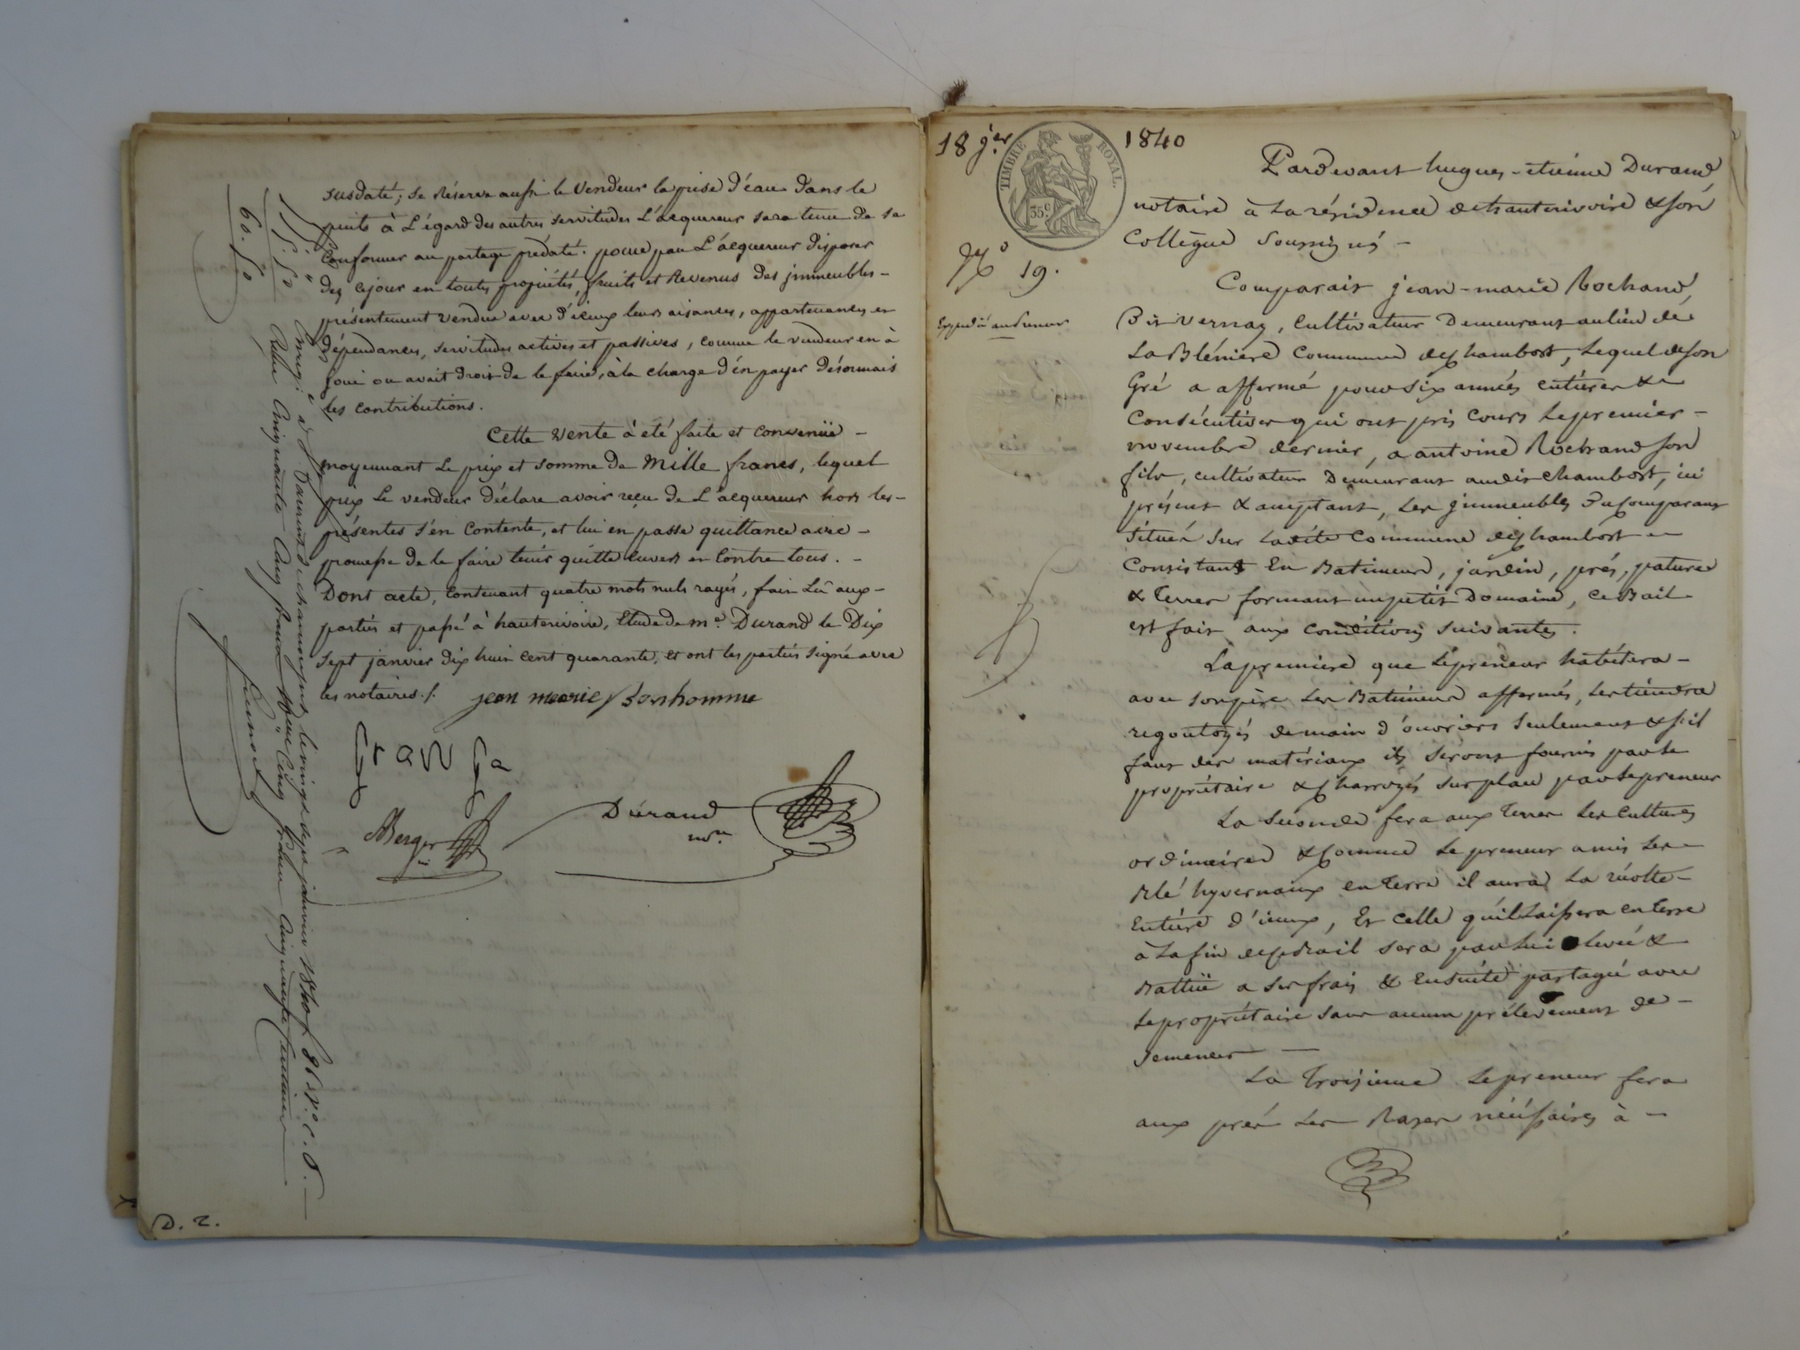 susdaté; se réserve aussi le vendeur la prise d'eau dans le
puits à l'égard des autres servitudes l'acquereur sera tenu de se
conformer au partage prédaté. pour par l'acquereur disposer
dez cejour en toutes propriétés, fruits et revenus des jmmeubles -
présentement vendus avec d'iceux leurs aisances, appartenances et
dépendances, servitudes actives et passives, comme le vendeur en à
joui ou avait droit de le faire, à la charge d'én payer désormais
les contributions.
Cette vente à été faite et convenüe -
moyennant le prix et somme de Mille francs, lequel
prix le vendeur déclare avoir reçu de l'acquereur hors les -
présentes s'en contente, et lui en passe quittance avec -
promesse de le faire tenir quitte envers en contre tous. -
Dont acte, contenant quatre mots nuls rayés, fait lû aux -
parties et passé à hauterivoire, Etude de me. Durand le Dix
sept janvier dix huit cent quarante, et ont les parties signé avec
les notaires ./.
jean marie bonhomme
granja
ABerger
Durand
nre.
55. 50
5
60. 50
Enregé à St Laurent de chamousset le vingt sept janvier 1840 f 86 Ro. c. 8.
Reçu cinquante cinq francs
D. 2.
18 jer.
1840
TIMBRE ROYAL.
35 c
No 19.
Pardevant hugues-etiénne Durand,
notaire à la résidence de hauterivoire & són
Collègue soussignés -
Comparait jean-marie Rochand,
Dit Vernay, cultivateur Demeurant au lieu de
La Bléniere commune de Chambost, lequel de son
Gré a affermé pour six années entières &
consécutives qui ont pris cours le premier -
novembre dernier, a antoine Rochand son
fils, cultivateur Demeurant audit chambost, ici
présent & acceptant, les jmmeubles du comparant
Situés sur ladite commune de Chambost -
Consistant En Batiments, jardin, prés, pature
& terres formant un petit Domaine, ce Bail -
est fait aux conditions suivantes :
La premiere que le preneur habitera -
avec son père les Batiments affermés, les tiendra
regoutoyés de main d'ouvriers seulement & s'il
faut des matériaux ils seront fournis par le
propriétaire & Charroyés sur place par le preneur
La seconde fera aux terres les cultures
ordinaires & comme le preneur a mis les -
Blé hyvernaux en terre il aura la récolte -
Entière d'iceux, Et celle qu'il laissera en terre
à la fin de ce Bail sera par lui levée &
Battüe a ses frais & Ensuite partagée avec
le propriétaire sans aucun prélevement de -
semences -
La troisieme le preneur fera
aux prés les Rases nécéssaires à -